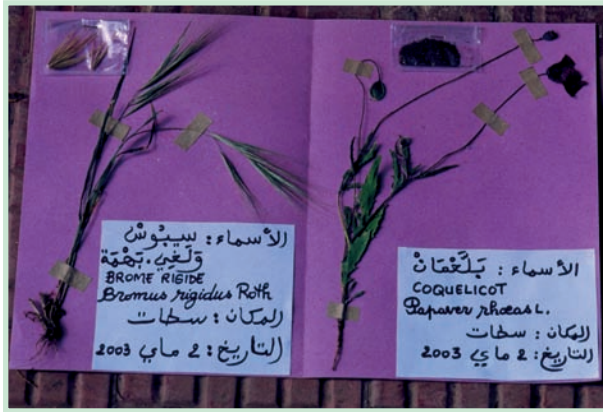 الأسماء: سيبُوسْ
وَلْغِي. بَهْمَة
BROME RIGIDE
Bromus rigidus Roth
المكان: سطات
التاريخ: 2 ماي 2003
الأسماء: بَلَّعْمَانْ
COQUELICOT
Papaver rhoeas L.
المكان: سطات
التاريخ: 2 ماي 2003